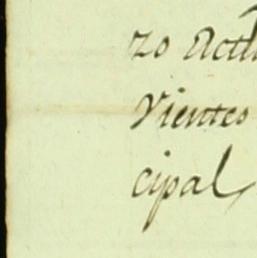 zo Actu
Vientes
cipal